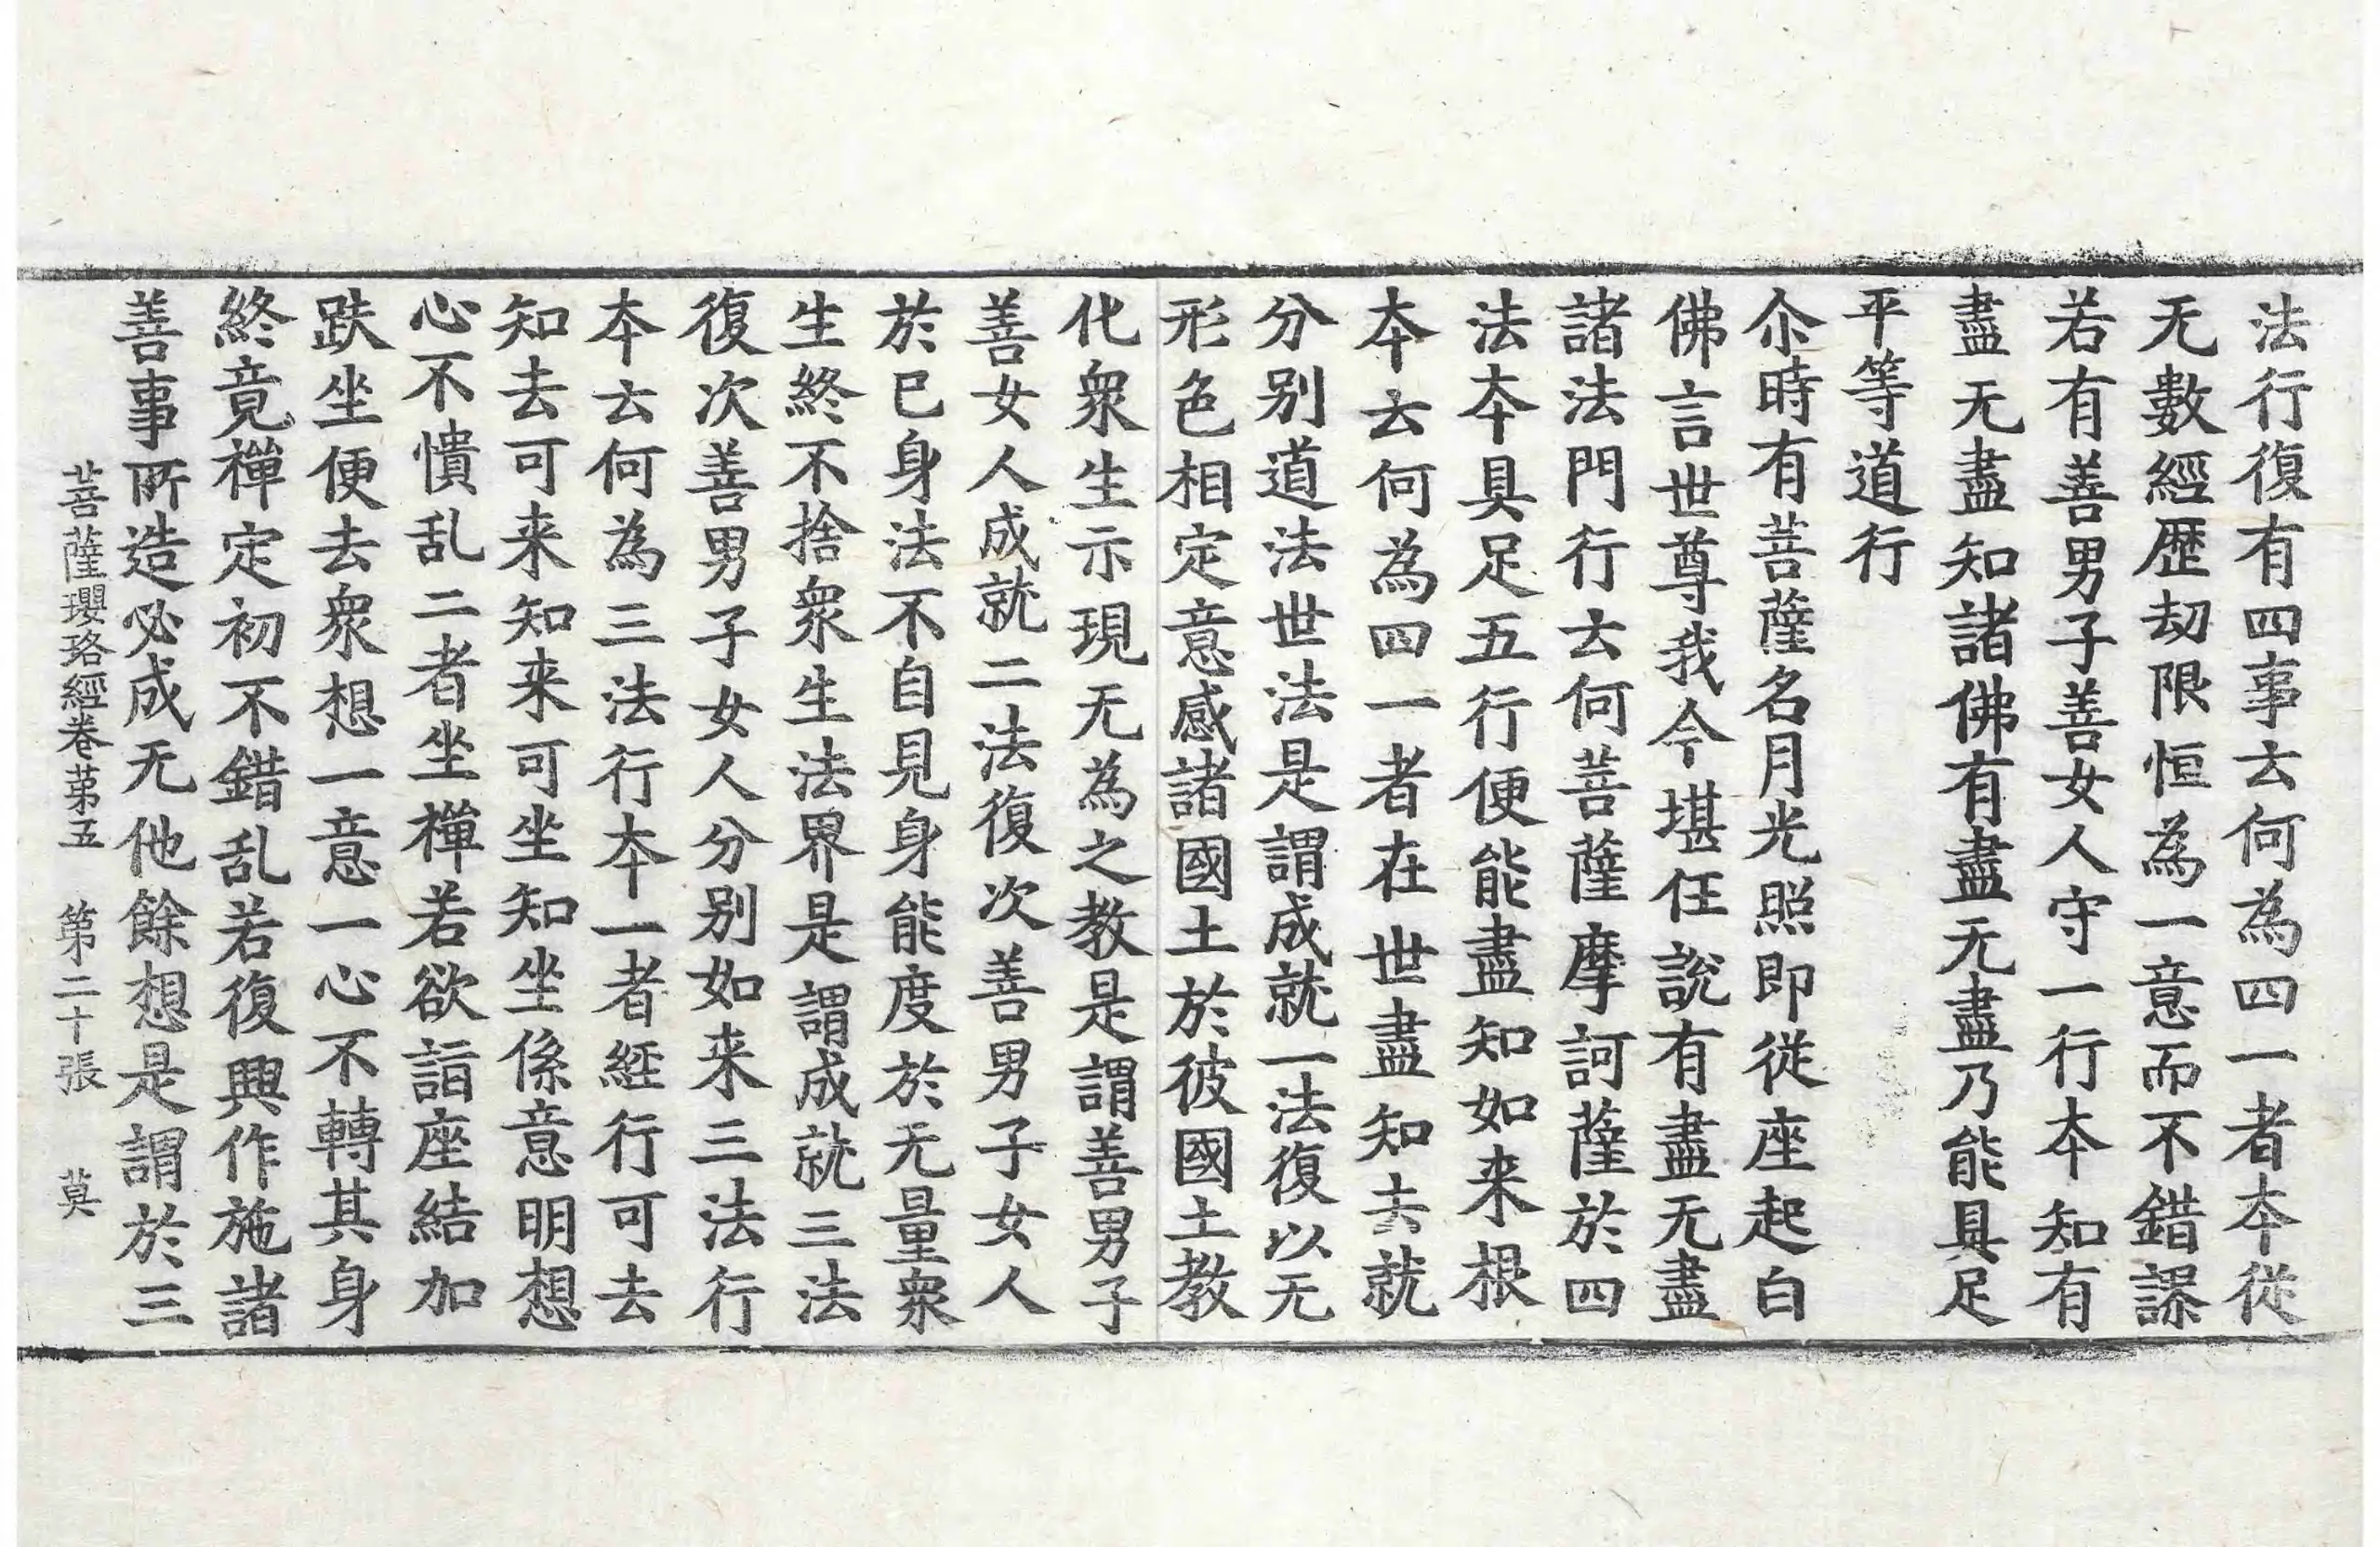 法行復有四事云何為四一者夲從
无數經歷劫限恒為一意而不錯謬
若有善男子善女人守一行夲知有
盡无盡知諸佛有盡无盡乃能具足
平等道行
尒時有菩薩名月光照即從座起白
佛言世尊我今堪任說有盡无盡
諸法門行云何菩薩摩訶薩於四
法夲具足五行便能盡知如来根
夲云何為四一者在世盡知去就
分別道法世法是謂成就一法復以无
形色相定意感諸國土於彼國土教
化衆生示現无為之教是謂善男子
善女人成就二法復次善男子女人
於已身法不自見身能度於无量衆
生終不捨衆生法界是謂成就三法
復次善男子女人分別如来三法行
夲云何為三法行夲一者經行可去
知去可来知来可坐知坐係意明想
心不憒乱二者坐禪若欲詣座結加
趺坐便去衆想一意一心不轉其身
終竟禪定初不錯乱若復興作施諸
善事所造必成无他餘想是謂於三
菩薩瓔珞經卷苐五 第二十張 莫